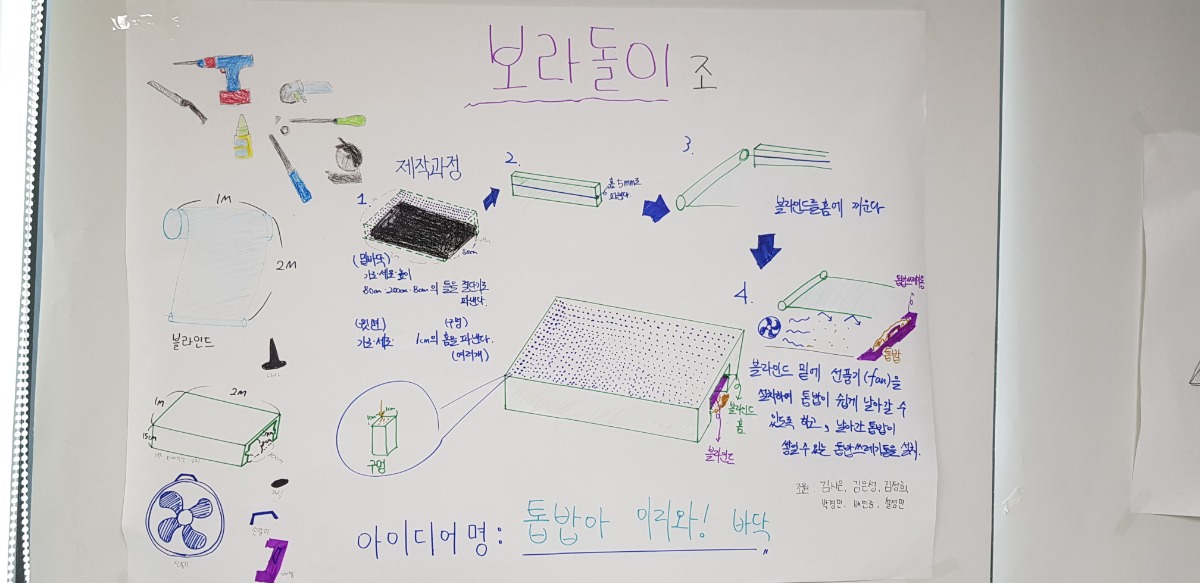 보라돌이 조
제작과정
1.
80cm
(밑바닥)
가로·세로·높이
80cm·200cm·8cm의 틀을
파낸다.
(윗면)
가로·세로
(구멍)
1cm의 홈을 파낸다.
(여러개)
2.
홈 5mm로
파낸다.
3.
블라인드를 홈에 끼운다
4.
톱밥쓰레기통
톱밥
블라인드 밑에 선풍기(fan)을
설치하여 톱밥이 쉽게 날아갈 수
있도록 하고, 날아간 톱밥이
쌓일 수 있는 톱밥쓰레기통을 설치.
1M
2M
블라인드
나사
1M
2M
15cm
선풍기
손잡이
1cm
1cm
구멍
블라인드
홈
블라인드
조원 : 김나은, 김은성, 김정회,
박경민,
아이디어명: 톱밥아 이리와! 바닥